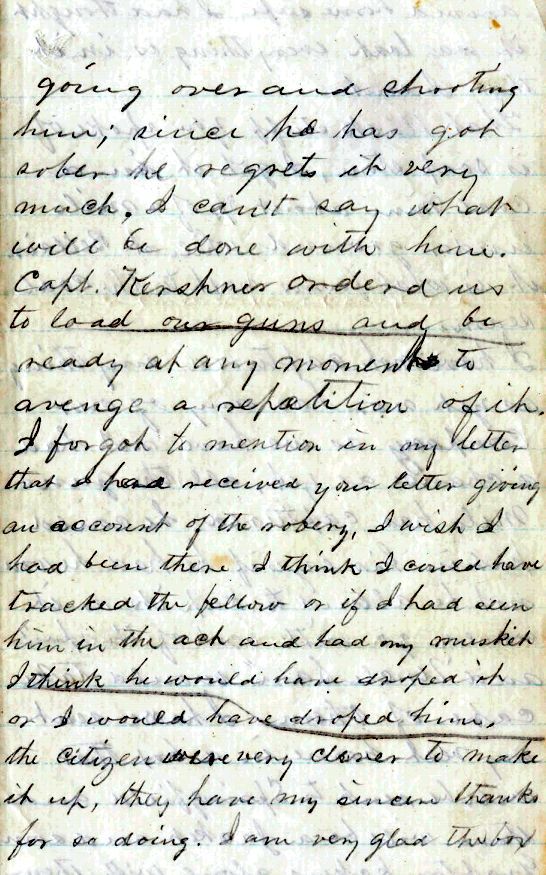 going over and shooting
him; since he has got
sober he regrets it very
much. I can't say what
will be done with him.
Capt. Kershner orderd us
to load our guns and be
ready at any moment to
avenge a repetition of it.
I forgot to mention in my letter
that I had received your letter giving
an account of the robery, I wish I
had been there I think I could have
tracked the fellow or if I had seen
him in the act and had my musket
I think he would have droped it
or I would have droped him,
the citizen were very clever to make
it up, they have my sincere thanks
for so doing. I am very glad the